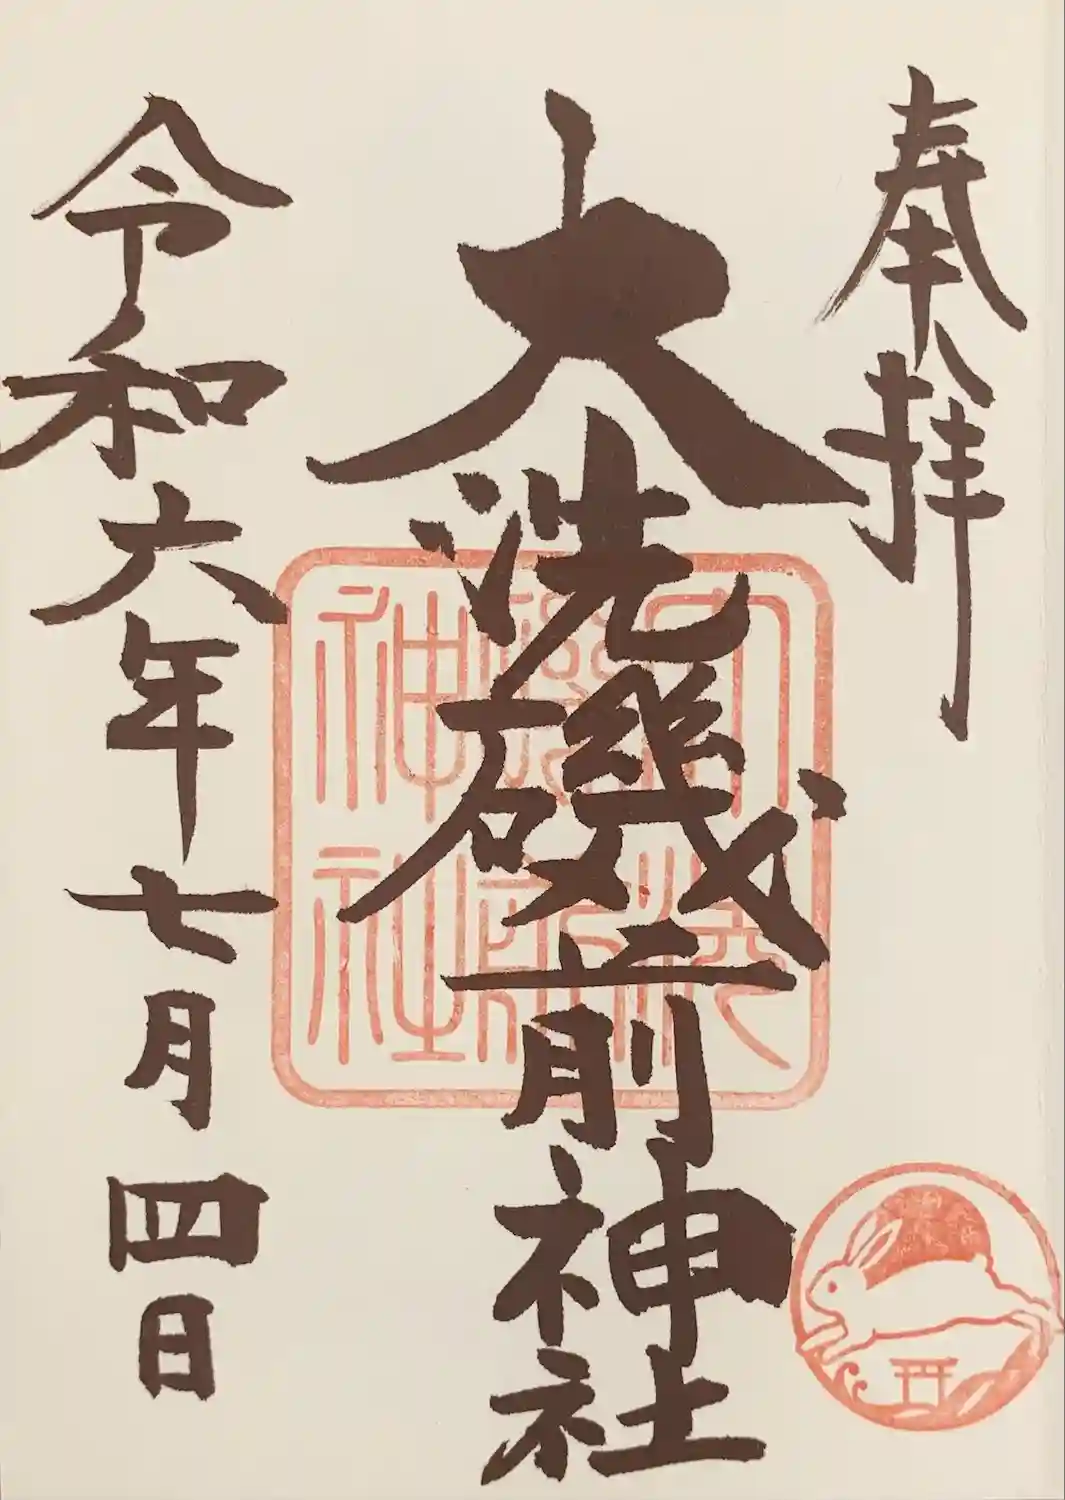 奉拝
大洗磯前神社
令和六年七月四日
大洗
磯前
神社